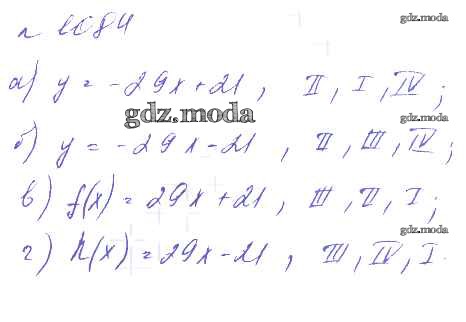 gdz.moda
п 1084
а) y = -29x+21, II, I, IV;
gdz.moda
gdz.moda
б) y = -29x-21, II, III, IV;
в) f(x) = 29x+21, III, II, I;
gdz.moda
г) h(x) = 29x-21, III, IV, I.